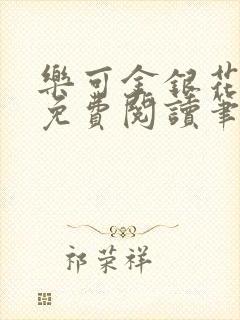 樂可金銀花
免費閱讀筆
祁荣祥